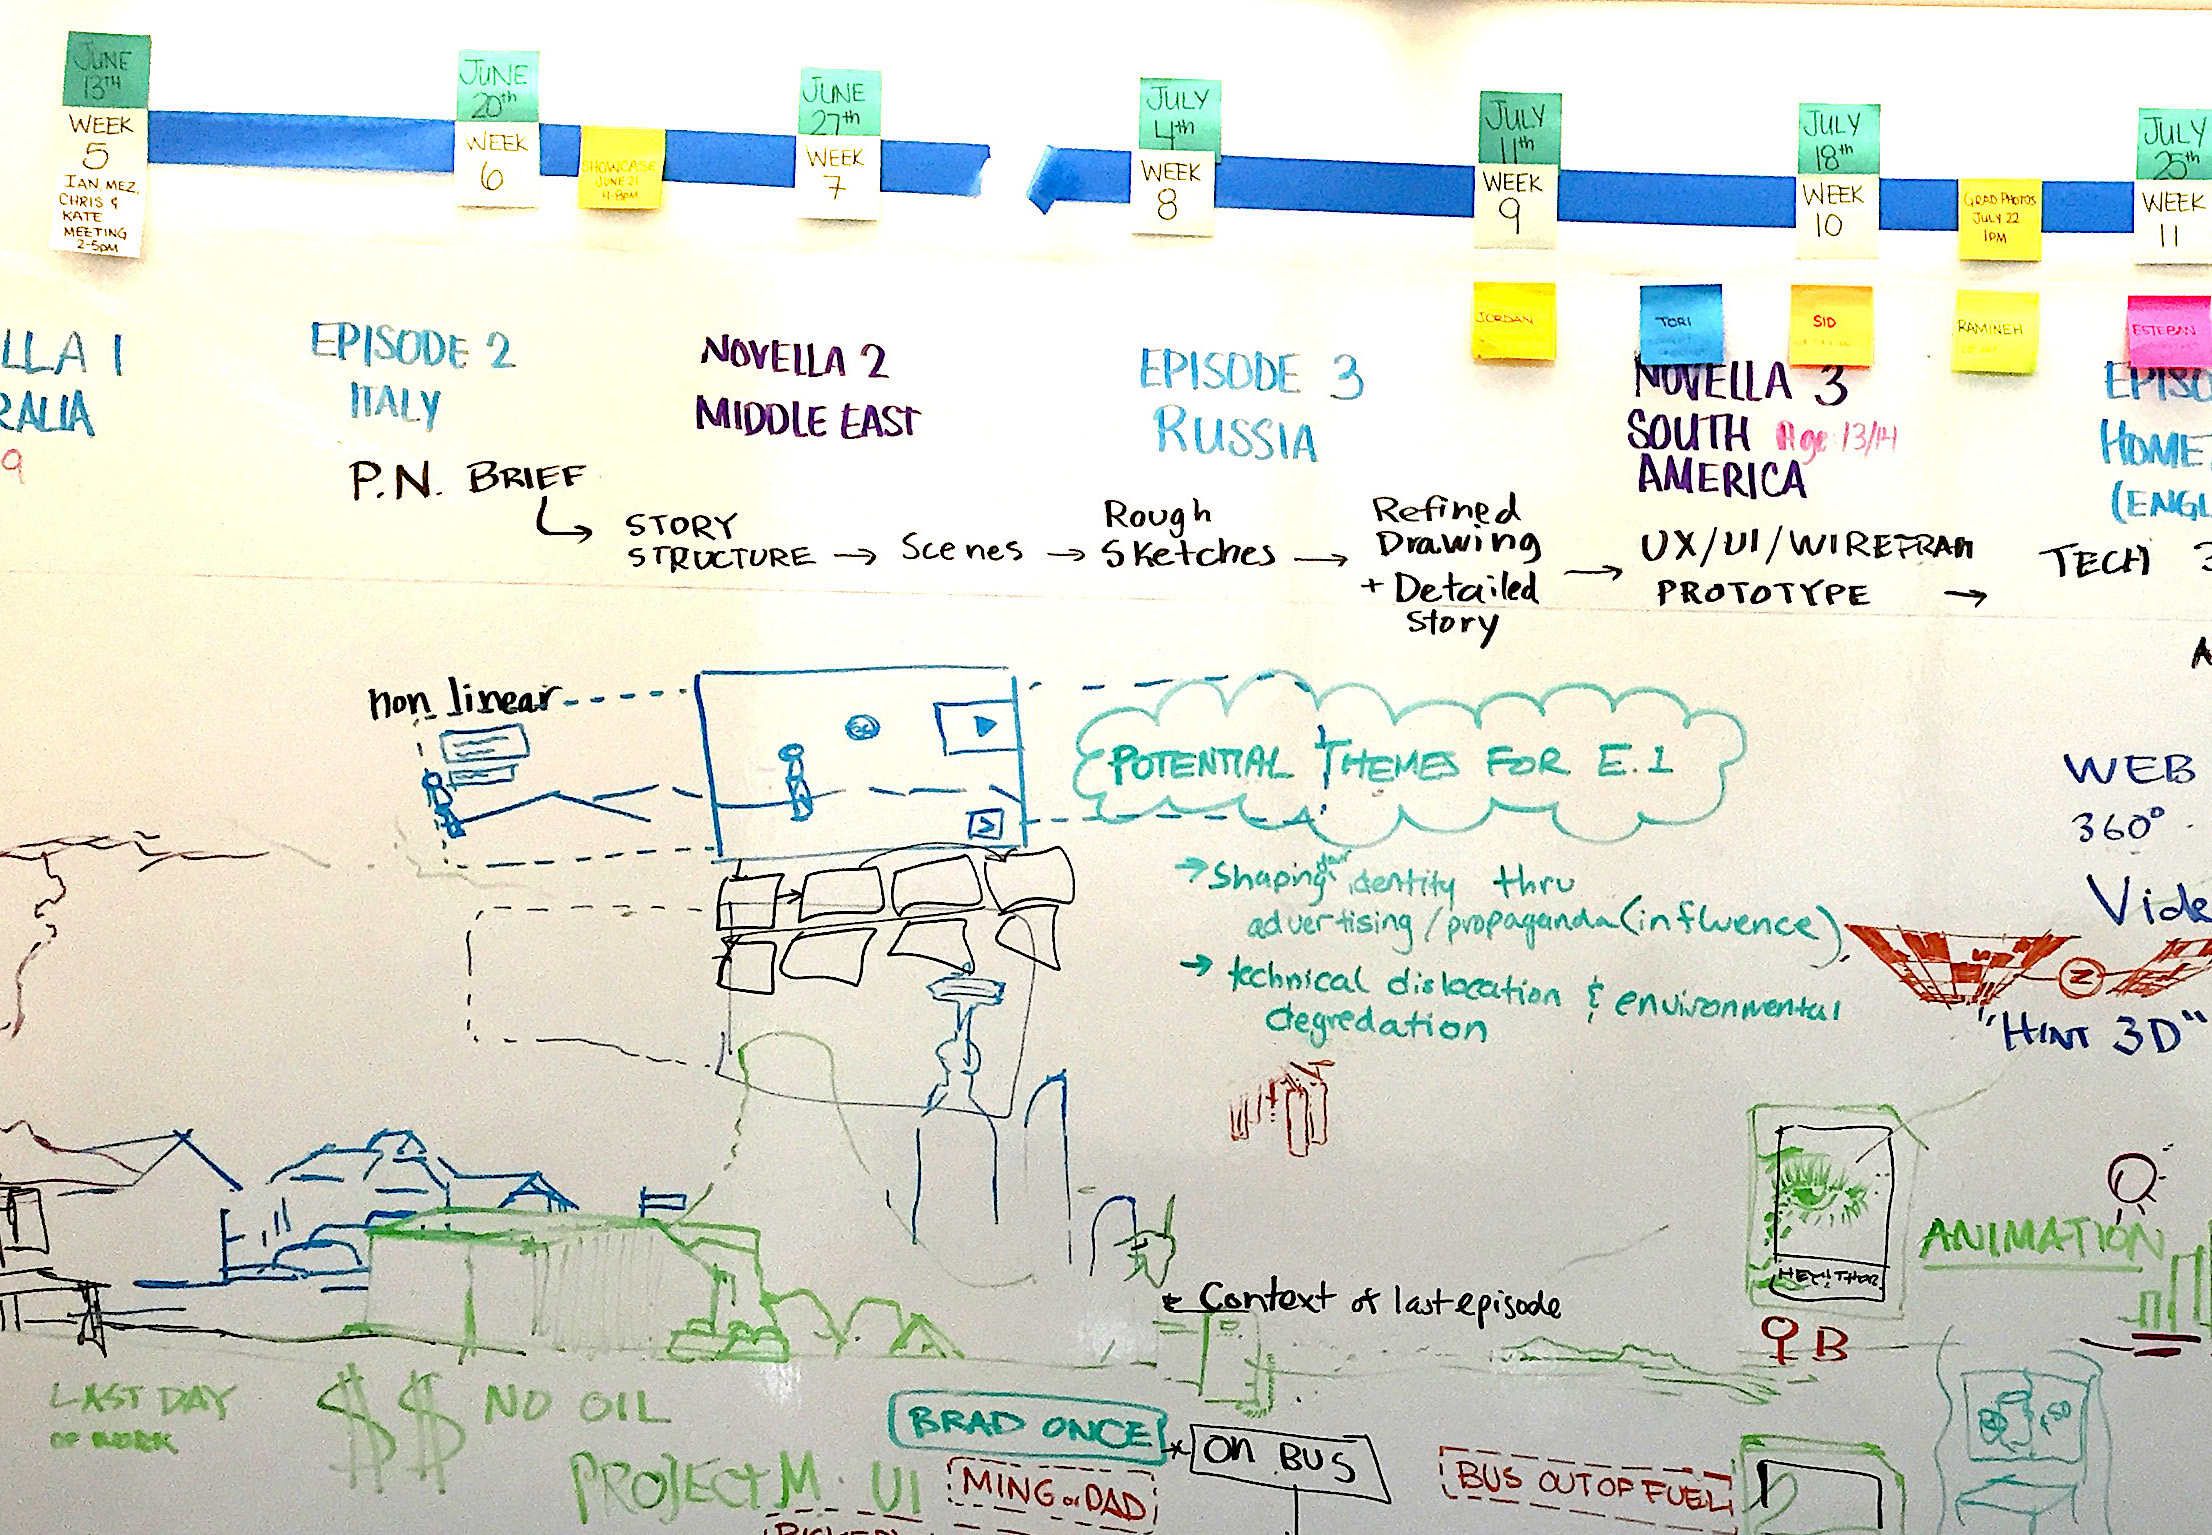 JUNE
13TH
WEEK
5
IAN, MEZ,
CHRIS &
KATE
MEETING
2-5PM
JUNE
20th
WEEK
6
SHOWCASE
JUNE 21
4-8PM
JUNE
27th
WEEK
7
JULY
4th
WEEK
8
JULY
11th
WEEK
9
JULY
18th
WEEK
10
GRAD PHOTOS
JULY 22
1PM
JULY
25th
WEEK
11
JORDAN
TORI
SID
RAMINEH
ESTEBAN
LLA 1
RALIA
9
EPISODE 2
ITALY
NOVELLA 2
MIDDLE EAST
EPISODE 3
RUSSIA
NOVELLA 3
SOUTH Age 13/14
AMERICA
EPISO
HOME
(ENGL
P.N. BRIEF
STORY
STRUCTURE → Scenes →
Rough
Sketches →
Refined
Drawing
+ Detailed
Story →
UX/UI/WIREFRAM
PROTOTYPE →
TECH
non linear
POTENTIAL THEMES FOR E.1
→ Shaping their identity thru
advertising/propaganda (influence)
→ technical dislocation & environmental
degredation
WEB
360°
Vide
Z
"HINT 3D"
HEY! THOR
ANIMATION
B
Context of last episode
LAST DAY
OF WORK
$$ NO OIL
PROJECT M. UI
BRAD ONCE
ON BUS
MING or DAD
BUS OUT OF FUEL